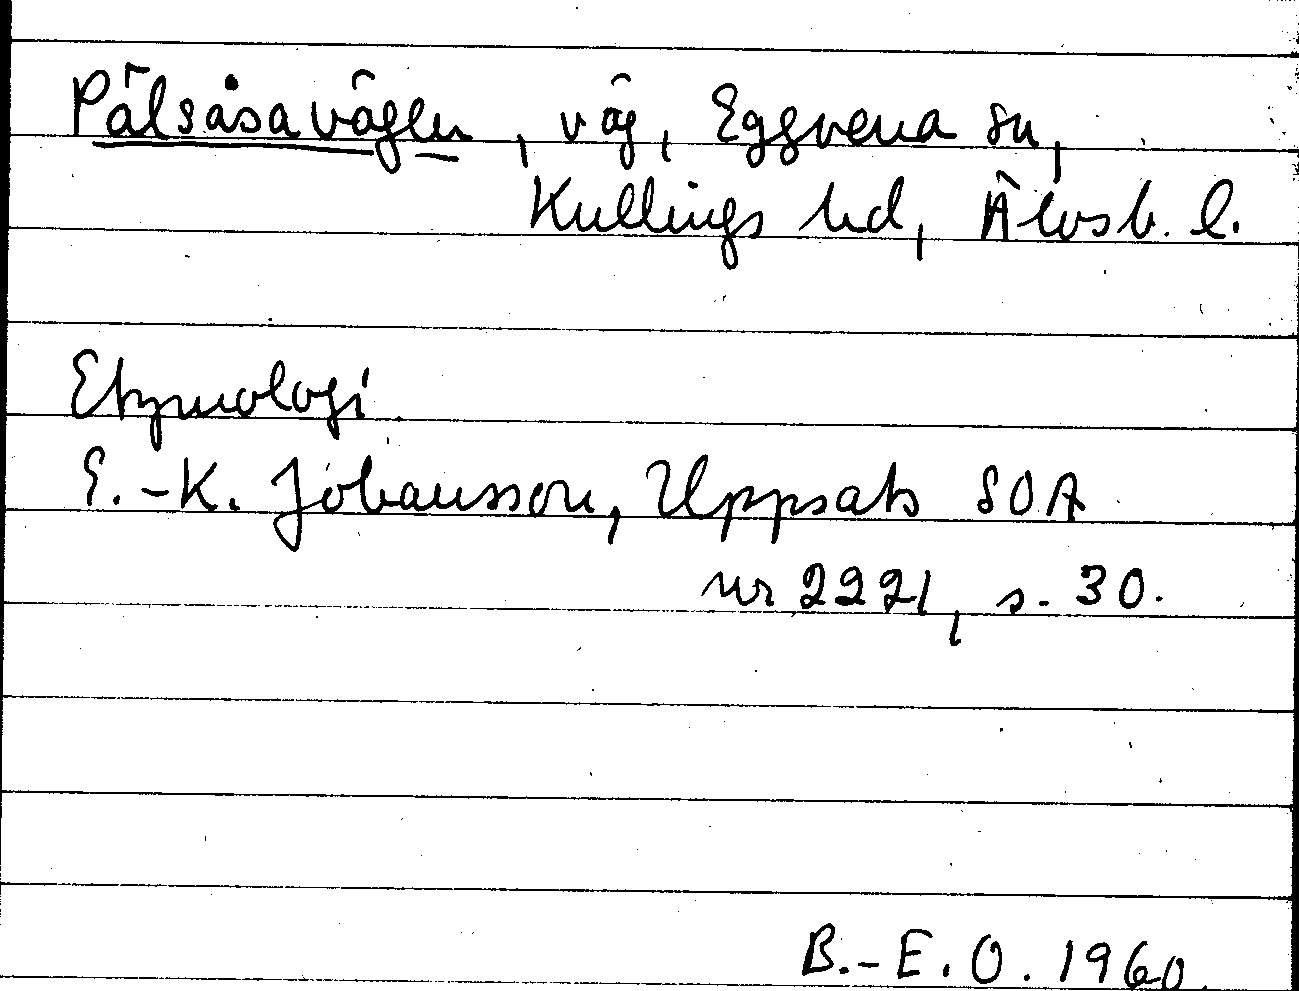 Pälsåsavägen, väg, Eggvena sn,
Kullings hd, Älvsb. l.
Etymologi.
E.-K. Johansson, Uppsats SOA
nr 2221, s. 30.
B.-E. O. 1960.